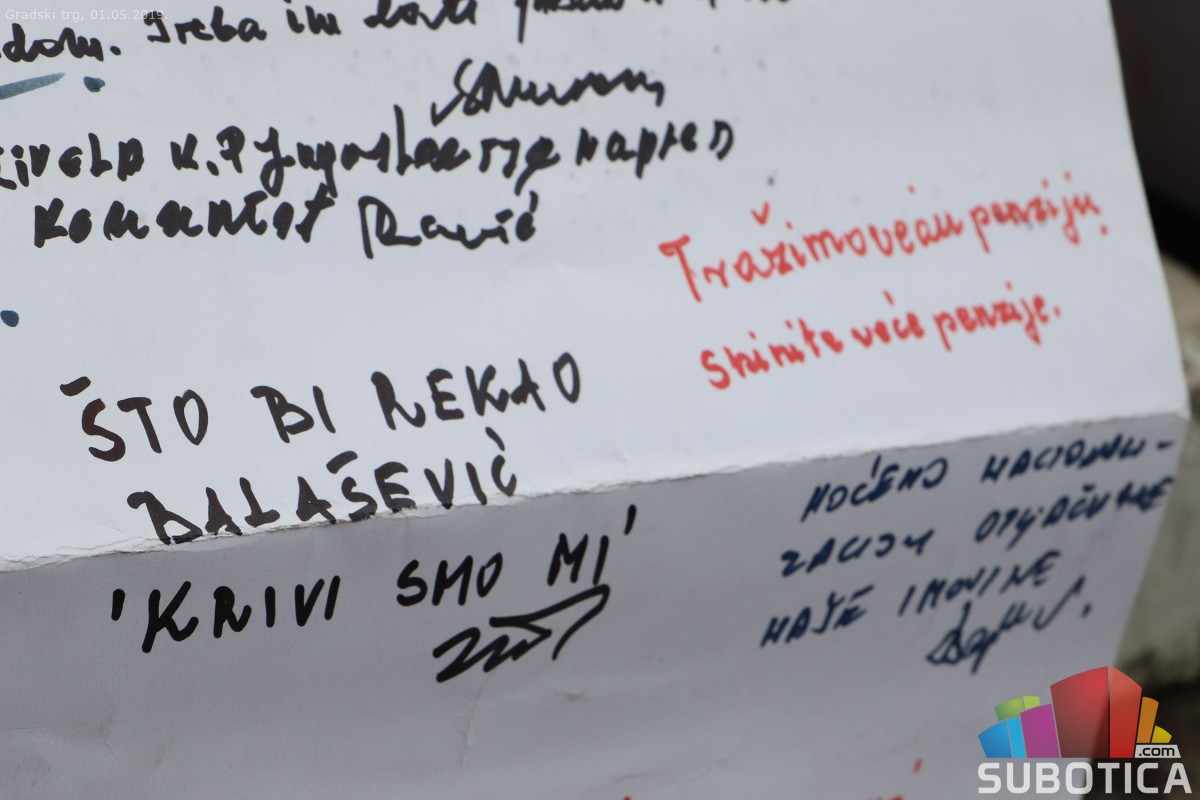 Gradski trg, 01.05.2019.
dom. Treba im dati
živela K.P Jugoslavije napred
Komunist Ravić
Tražimo većiu penziju
shinite veće penzije.
ŠTO BI REKAO
BALAŠEVIĆ
'KRIVI SMO MI'
HOĆEMO NACIONALI-
ZACIJU OTUĐAČENE
NAŠE IMOVINE
.com
SUBOTICA